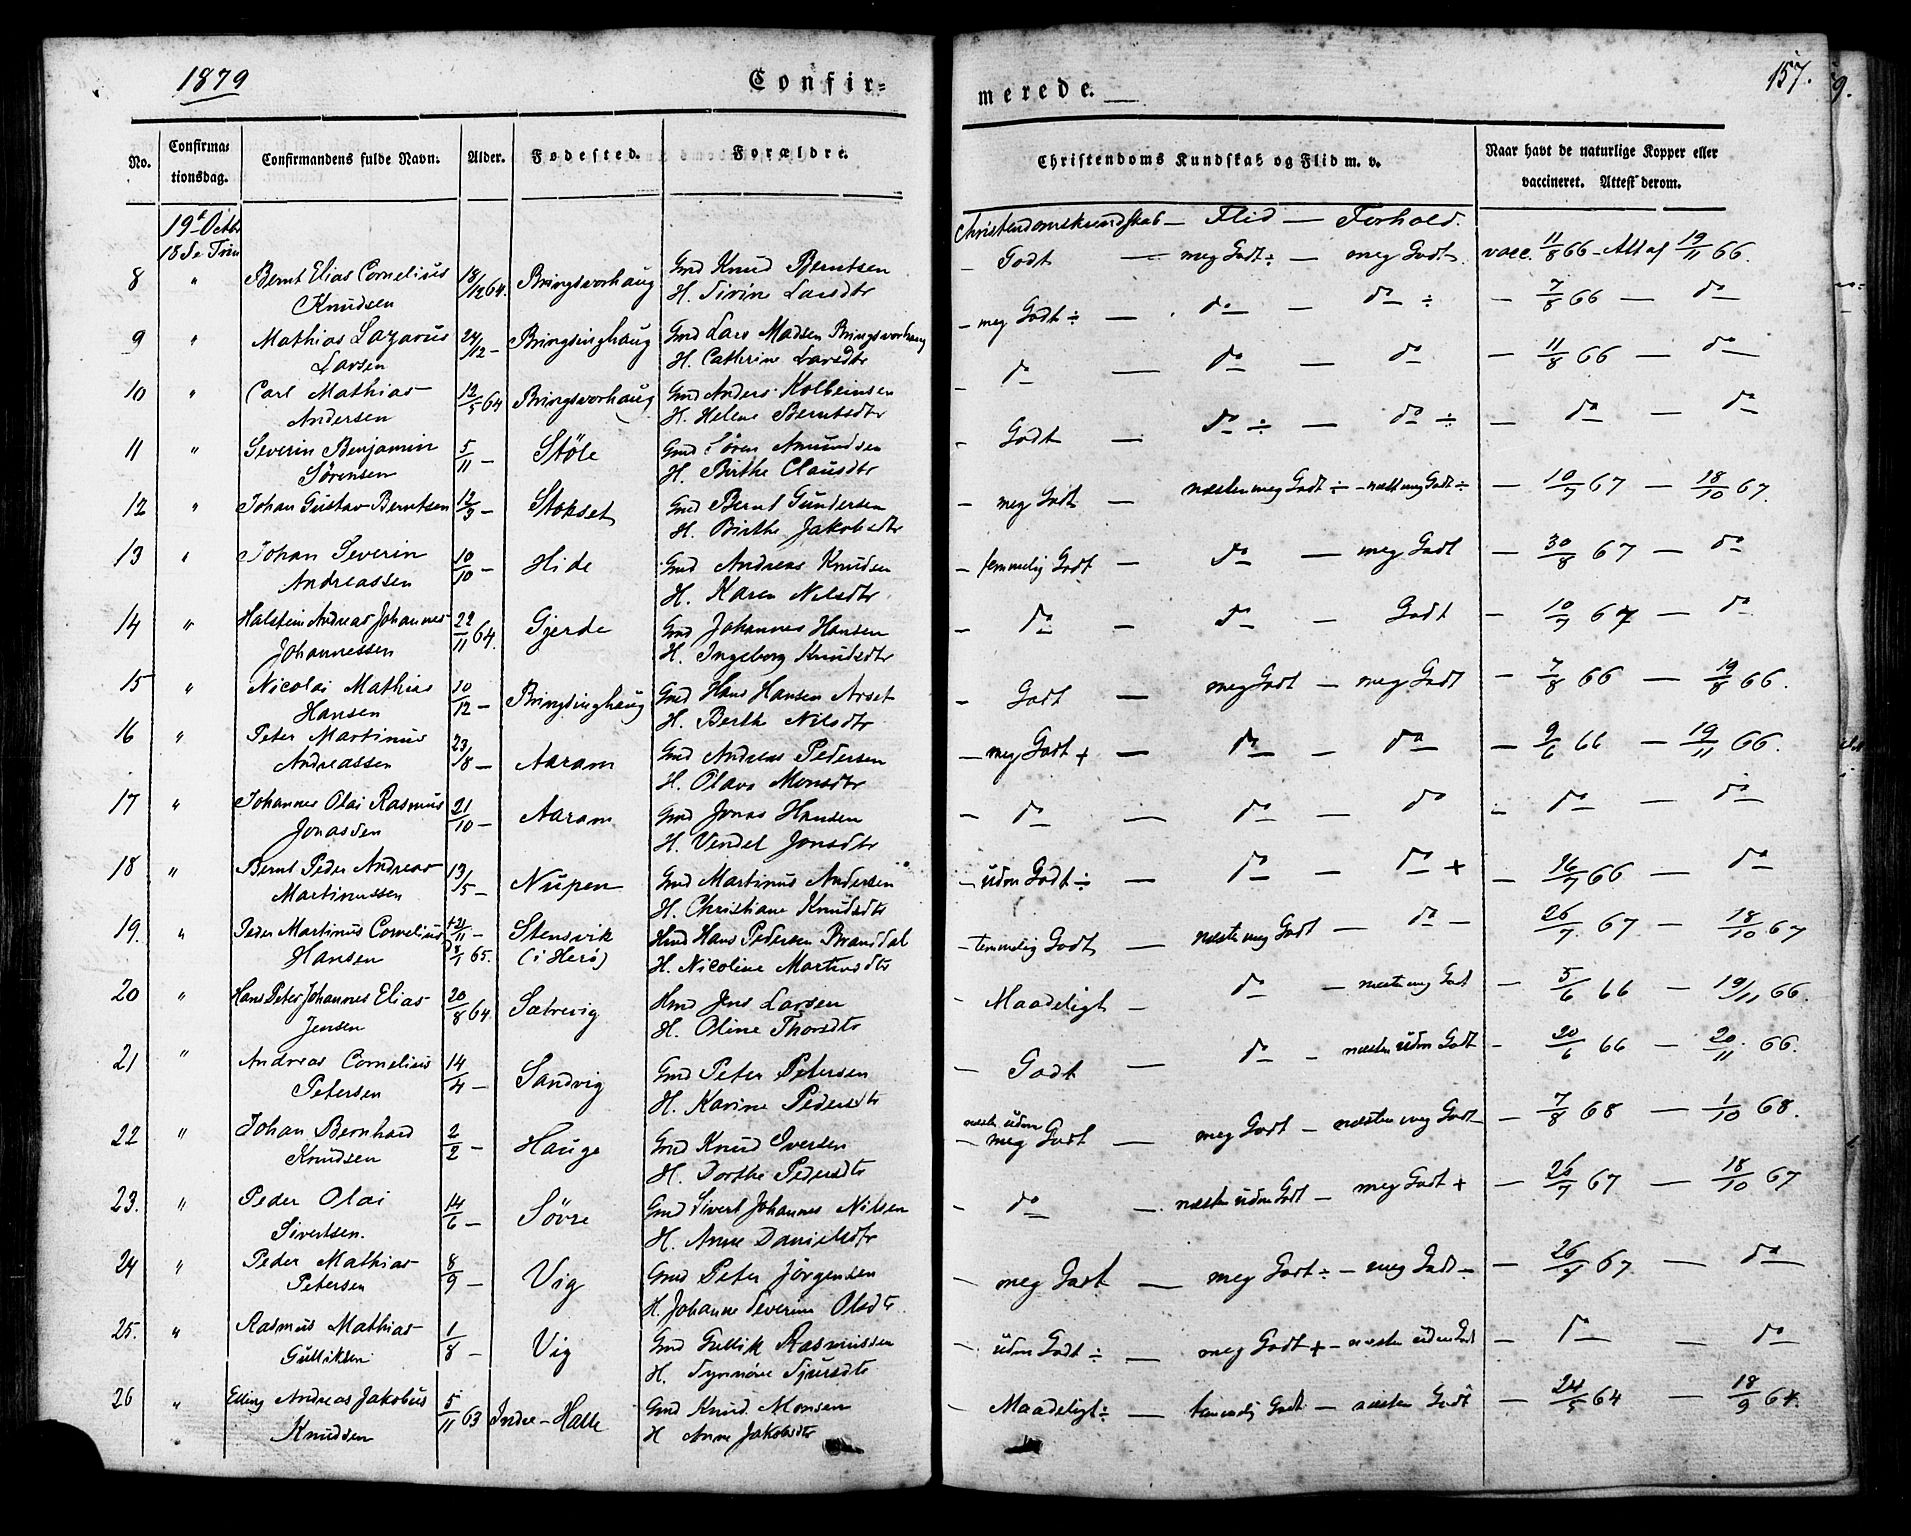 1879
Confir=
No.
Confirma=
tionsdag.
Confirmandens fulde Navn:
Alder.
Fodested.
Forældre.
19de Octbr
18 Se Trin
8 " Bernt Elias Cornelius 18/12 64. Bringsvorhaug Gmd Knud Berntsen
Knudsen H. Sirine Larsdtr
9 " Mathias Lazarus 24/12 – Bringsinghaug Gmd Lars Madsen Bringsvorhaug
Larsen H. Cathrine Larsdtr
10 " Carl Mathias 12/5 64 Bringsvorhaug Gmd Anders Kolbeinsen
Andersen H. Helene Berntsdtr
11 " Severin Benjamin 5/11 – Støle Gmd Sören Amundsen
Sørensen H. Birthe Clausdtr
12 " Johan Gustav Berntsen 12/3 – Stokset Gmd Bernt Gundersen
H. Birthe Jakobsdtr
13 " Johan Severin 10/10 – Hide Gmd Andreas Knudsen
Andreassen H. Karen Nilsdtr
14 " Halstein Andreas Johannes 22/11 64. Gjerde Gmd Johannes Hansen
Johannessen H. Ingeborg Knudsdtr
15 " Nicolai Mathias 10/12 – Bringsinghaug Gmd Hans Hansen Arset
Hansen H. Berthe Nilsdtr
16 " Peter Martinus 23/8 – Aaram Gmd Andreas Pedersen
Andreassen H. Olava Monsdtr
17 " Johannes Olai Rasmus 21/10 – Aaram Gmd Jonas Hansen
Jonassen H. Vendel Jonsdtr
18 " Bernt Peder Andreas 13/5 – Nupen Gmd Martinus Andersen
Martinussen H. Christiane Knudsdtr
19. " Peder Martinus Cornelius 21/11 – Stensvik Hmd Hans Pedersen Brandal
Hansen 8/1 65. (i Herö) H. Nicoline Martinsdtr
20 " Hans Peter Johannes Elias 20/8 64. Sætrevig Hmd Jens Larsen
Jensen H. Oline Thorsdtr
21 " Andreas Cornelius 14/4 – Sandvig Gmd Peter Petersen
Petersen H. Karine Pedersdtr
22 " Johan Bernhard 2/2 – Hauge Gmd Knud Iversen
Knudsen H. Dorthe Pedersdtr
23. " Peder Olai 14/6 – Søvre Gmd Sivert Johannes Nilsen
Sivertsen. H. Anne Danielsdtr
24 " Peder Mathias 8/9 – Vig Gmd Peter Jörgensen
Petersen H. Johanne Severine Olsdtr.
25. " Rasmus Mathias 1/8 – Vig Gmd Gullik Rasmussen
Gulliksen H. Synnöve Sjursdtr
26 " Elling Andreas Jakobus 5/11 63 Indre-Halle Gmd Knud Monsen
Knudsen H Anne Jakobsdtr
157.
9.
merede.
Christendoms Kundskab og Flid m. v.
Naar havt de naturlige Kopper eller
vaccineret. Attest derom.
Christendomskundskab – Flid – Forhold.
– Godt – meg Godt ÷ – meg Godt vacc. 11/8 66 – Att af 19/11 66.
– meg Godt ÷ – do – do ÷ – 7/8 66 – do
– do – do – do – 11/8 66 – do
– Godt – do ÷ – do ÷ – do – do
– meg Godt – næsten meg Godt ÷ – næst meg Godt ÷ – 10/7 67 – 18/10 67.
– temmelig Godt – do – meg Godt – 30/8 67 – do
– do – do – Godt – 10/7 67 – do
– Godt – meg Godt – meg Godt – 7/8 66 – 19/8 66.
– meg Godt + – do – do – 9/6 66 – 19/11 66.
– do – do – do – do – do
– udm Godt ÷ – do – do + – 16/7 66 – do
– temmelig Godt – næsten meg Godt – do – 26/7 67 – 18/10 67
– Maadeligt – do – næsten meg Godt – 5/6 66 – 19/11 66.
– Godt – do – næsten udm Godt – 20/6 66 – 20/11 66.
næsten udm
– meg Godt – meg Godt – næsten meg Godt – 7/8 68 – 1/10 68.
– do – næsten udm Godt – meg Godt + – 26/7 67 – 18/10 67
– meg Godt – meg Godt ÷ – meg Godt ÷ – 26/7 67 – do
– udm Godt ÷ – meg Godt + – næsten udm Godt – do – do
– Maadeligt ÷ – temmelig Godt – næsten Godt – 24/5 64 – 18/9 64.